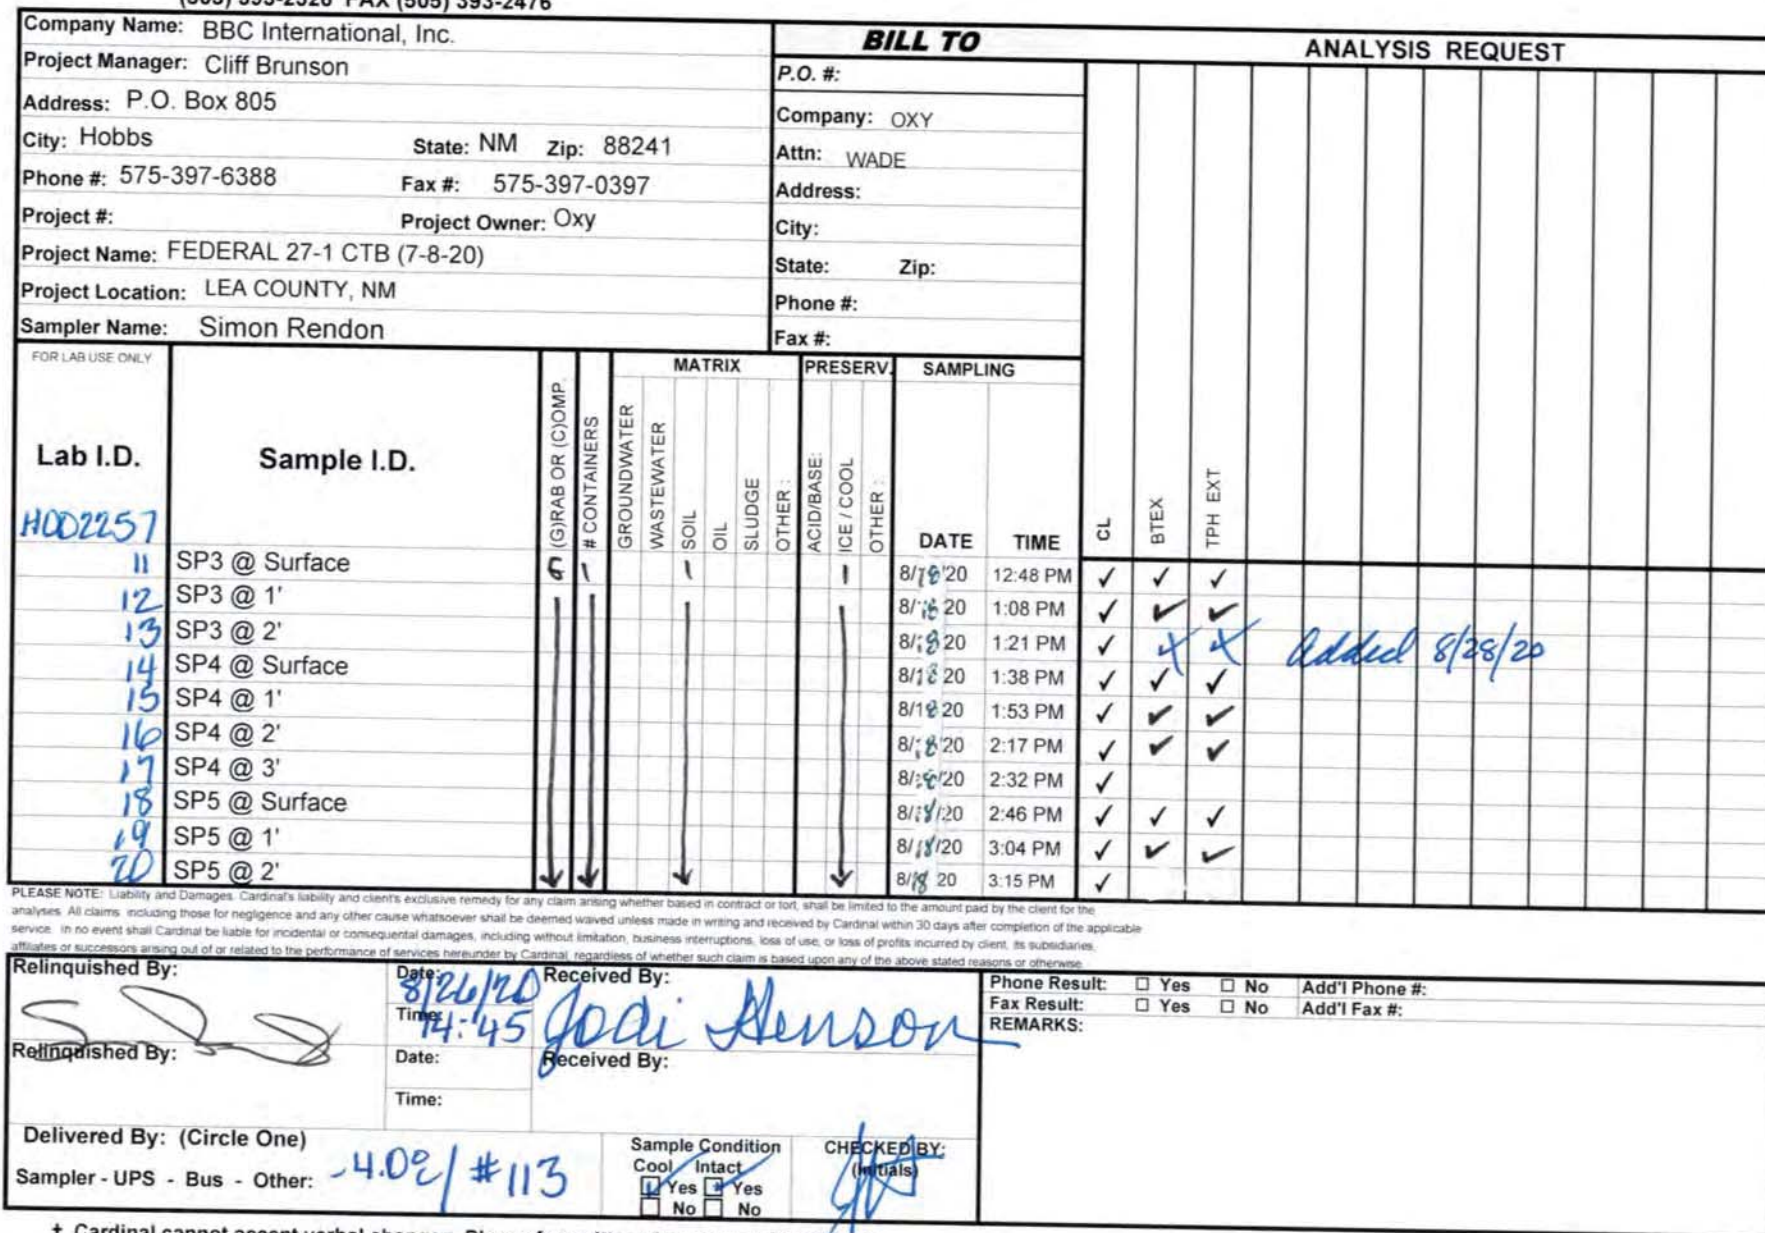 (505) 393-2326 FAX (505) 393-2476
Company Name: BBC International, Inc.
Project Manager: Cliff Brunson
Address: P.O. Box 805
City: Hobbs State: NM Zip: 88241
Phone #: 575-397-6388 Fax #: 575-397-0397
Project #: Project Owner: Oxy
Project Name: FEDERAL 27-1 CTB (7-8-20)
Project Location: LEA COUNTY, NM
Sampler Name: Simon Rendon
BILL TO
P.O. #:
Company: OXY
Attn: WADE
Address:
City:
State: Zip:
Phone #:
Fax #:
ANALYSIS REQUEST
FOR LAB USE ONLY
Lab I.D.
H002257
Sample I.D.
(G)RAB OR (C)OMP.
# CONTAINERS
MATRIX
GROUNDWATER
WASTEWATER
SOIL
OIL
SLUDGE
OTHER :
PRESERV.
ACID/BASE:
ICE / COOL
OTHER :
SAMPLING
DATE TIME
CL
BTEX
TPH EXT
11 SP3 @ Surface G 1 1 1 8/18/20 12:48 PM ✓ ✓ ✓
12 SP3 @ 1' 8/18/20 1:08 PM ✓ ✓ ✓
13 SP3 @ 2' 8/18/20 1:21 PM ✓ X X Added 8/28/20
14 SP4 @ Surface 8/18/20 1:38 PM ✓ ✓ ✓
15 SP4 @ 1' 8/18/20 1:53 PM ✓ ✓ ✓
16 SP4 @ 2' 8/18/20 2:17 PM ✓ ✓ ✓
17 SP4 @ 3' 8/18/20 2:32 PM ✓
18 SP5 @ Surface 8/18/20 2:46 PM ✓ ✓ ✓
19 SP5 @ 1' 8/18/20 3:04 PM ✓ ✓ ✓
20 SP5 @ 2' 8/18/20 3:15 PM ✓
PLEASE NOTE: Liability and Damages. Cardinal's liability and client's exclusive remedy for any claim arising whether based in contract or tort, shall be limited to the amount paid by the client for the
analyses. All claims including those for negligence and any other cause whatsoever shall be deemed waived unless made in writing and received by Cardinal within 30 days after completion of the applicable
service. In no event shall Cardinal be liable for incidental or consequental damages, including without limitation, business interruptions, loss of use, or loss of profits incurred by client, its subsidiaries,
affiliates or successors arising out of or related to the performance of services hereunder by Cardinal, regardless of whether such claim is based upon any of the above stated reasons or otherwise.
Relinquished By:
Date: 8/26/20
Time: 14:45
Received By:
Jodi Henson
Relinquished By:
Date:
Time:
Received By:
Phone Result: ☐ Yes ☐ No Add'l Phone #:
Fax Result: ☐ Yes ☐ No Add'l Fax #:
REMARKS:
Delivered By: (Circle One)
Sampler - UPS - Bus - Other: -4.0° / #113
Sample Condition
Cool Intact
Yes Yes
No No
CHECKED BY:
(Initials)